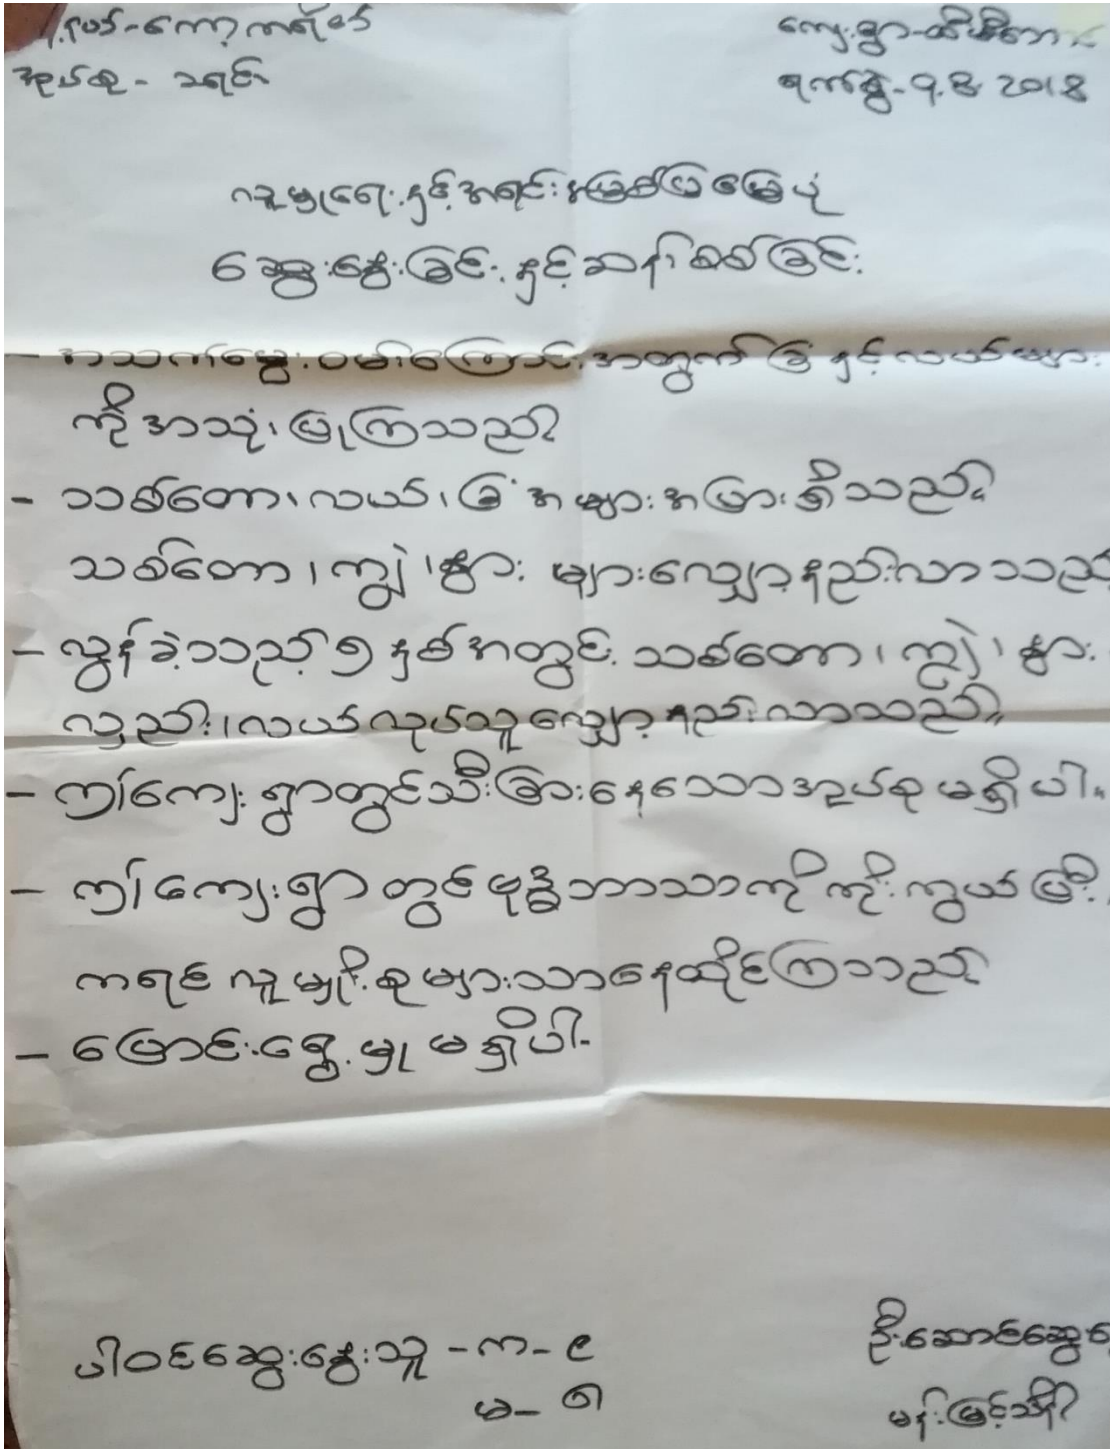 အုပ်စု - သရင်း
ကျေးရွာ - ထီဖိုးဘော
ရက်စွဲ - ၇.8. 2018
လူမှုရေးနှင့်အရင်းအမြစ်ပြမြေပုံ
ဆွေးနွေးခြင်းနှင့်ဆန်းစစ်ခြင်း
- အသက်မွေးဝမ်းကြောင်းအတွက် ခြံနှင့်လယ်များ
ကိုအသုံးပြုကြသည်။
- သစ်တော၊ လယ်၊ ခြံ အများအပြားရှိသည်။
သစ်တော၊ ကျွဲ၊ နွား များလျော့နည်းလာသည်
- လွန်ခဲ့သည့် ၅ နှစ်အတွင်း သစ်တော၊ ကျွဲ၊ နွား
လှည်း၊ လယ်လုပ်သူလျော့နည်းလာသည်။
- ဤကျေးရွာတွင်သီးခြားနေသောအုပ်စုမရှိပါ။
- ဤကျေးရွာတွင်ဗုဒ္ဓဘာသာကိုကိုးကွယ်ပြီး
ကရင်လူမျိုးစုများသာနေထိုင်ကြသည်
- ပြောင်းရွှေ့မှုမရှိပါ
ပါဝင်ဆွေးနွေးသူ - က - ၉
မ - ၆
ဦးဆောင်ဆွေး
မန်းမြင့်သိန်း